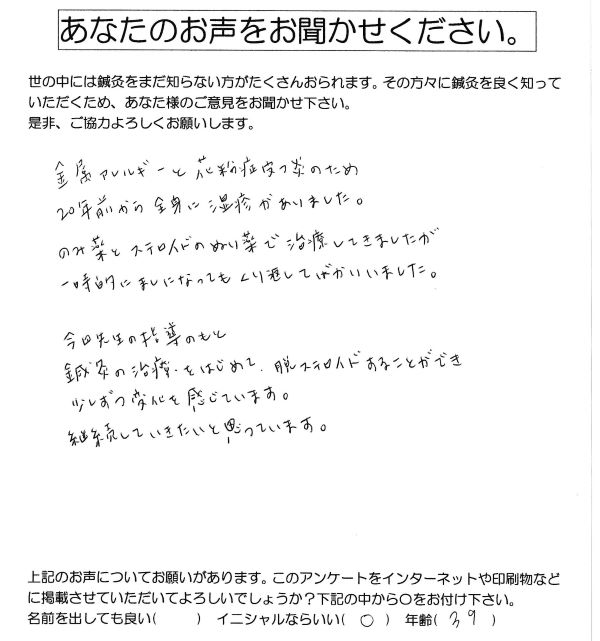 あなたのお声をお聞かせください。
世の中には鍼灸をまだ知らない方がたくさんおられます。その方々に鍼灸を良く知って
いただくため、あなた様のご意見をお聞かせ下さい。
是非、ご協力よろしくお願いします。
金属アレルギーと花粉症皮フ炎のため
20年前から全身に湿疹がありました。
のみ薬とステロイドのぬり薬で治療してきましたが
一時的にましになってもくり返してばかりいました。
今田先生の指導のもと
鍼灸の治療をはじめて、脱ステロイドすることができ
少しずつ変化を感じています。
継続していきたいと思っています。
上記のお声についてお願いがあります。このアンケートをインターネットや印刷物など
に掲載させていただいてよろしいでしょうか？下記の中から○をお付け下さい。
名前を出しても良い(　　) イニシャルならいい( ○ ) 年齢( 39 )